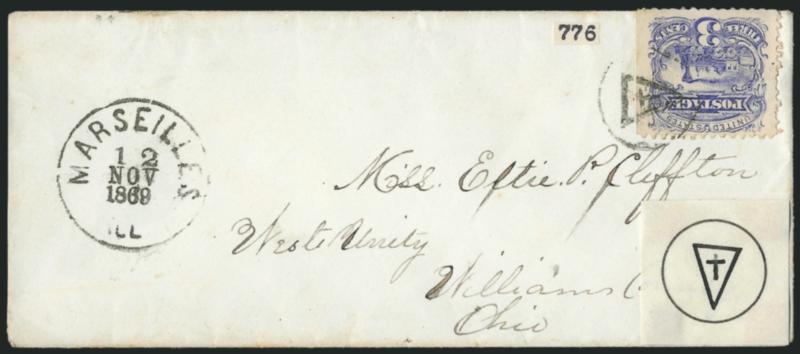 776
UNITED STATES
POSTAGE
3
THREE CENTS
MARSEILLES
12
NOV
1869
ILL
Miss. Effie. P. Cleffton
West Unity
Williams C
Ohio